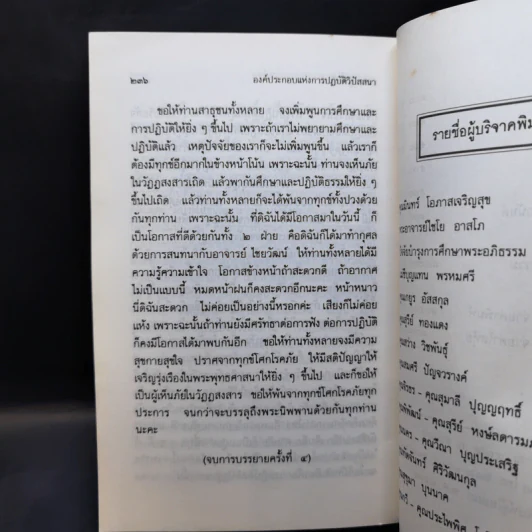 ๒๓๖
องค์ประกอบแห่งการปฏิบัติวิปัสสนา
ขอให้ท่านสาธุชนทั้งหลาย จงเพิ่มพูนการศึกษาและ
การปฏิบัติให้ยิ่ง ๆ ขึ้นไป เพราะถ้าเราไม่พยายามศึกษาและ
ปฏิบัติแล้ว เหตุปัจจัยของเราก็จะไม่เพิ่มพูนขึ้น แล้วเราก็
ต้องมีทุกข์อีกมากในข้างหน้าโน้น เพราะฉะนั้น ท่านจงเห็นภัย
ในวัฏฏสงสารเถิด แล้วพากันศึกษาและปฏิบัติธรรมให้ยิ่ง ๆ
ขึ้นไปเถิด แล้วท่านทั้งหลายก็จะได้พ้นจากทุกข์ทั้งปวงด้วย
กันทุกท่าน เพราะฉะนั้น ที่ดิฉันได้มีโอกาสมาในวันนี้ ก็
เป็นโอกาสที่ดีด้วยกันทั้ง ๒ ฝ่าย คือดิฉันก็ได้มาทำกุศล
ด้วยการสนทนากับอาจารย์ ไชยวัฒน์ ให้ท่านทั้งหลายได้มี
ความรู้ความเข้าใจ โอกาสข้างหน้าถ้าสะดวกดี ถ้าอากาศ
ไม่เป็นแบบนี้ หมดหน้าฝนก็คงสะดวกอีกนะคะ หน้าหนาว
นี่ดิฉันสะดวก ไม่ค่อยเป็นอย่างนี้หรอกค่ะ เสียงก็ไม่ค่อย
แห้ง เพราะฉะนั้นถ้าท่านยังมีศรัทธาต่อการฟัง ต่อการปฏิบัติ
ก็คงมีโอกาสได้มาพบกันอีก ขอให้ท่านทั้งหลายจงมีความ
สุขกายสุขใจ ปราศจากทุกข์โศกโรคภัย ให้มีสติปัญญาให้
เจริญรุ่งเรืองในพระพุทธศาสนาให้ยิ่ง ๆ ขึ้นไป และก็ขอให้
เป็นผู้เห็นภัยในวัฏฏสงสาร ขอให้พ้นจากทุกข์โศกโรคภัยทุก
ประการ จนกว่าจะบรรลุถึงพระนิพพานด้วยกันทุกท่าน
นะคะ
(จบการบรรยายครั้งที่ ๔)
รายชื่อผู้บริจาคพิม
โอภาสเจริญสุข
ระอาจารย์ไชโย อาสโภ
บำรุงการศึกษาพระอภิธรรม
บุญแทน พรหมศรี
อัสสกุล
สุรีย์ ทองแดง
สว่าง วิชพันธุ์
สมศรี ปัญจวรางค์
- คุณสุมาลี ปุญญฤทธิ์
พิพัฒน์ - คุณสุรีย์ หงษ์ลดารมภ์
- คุณวีณา บุญประเสริฐ
จันทร์ ศิริวัฒนกุล
บุนนาค
- คุณประไพพิศ